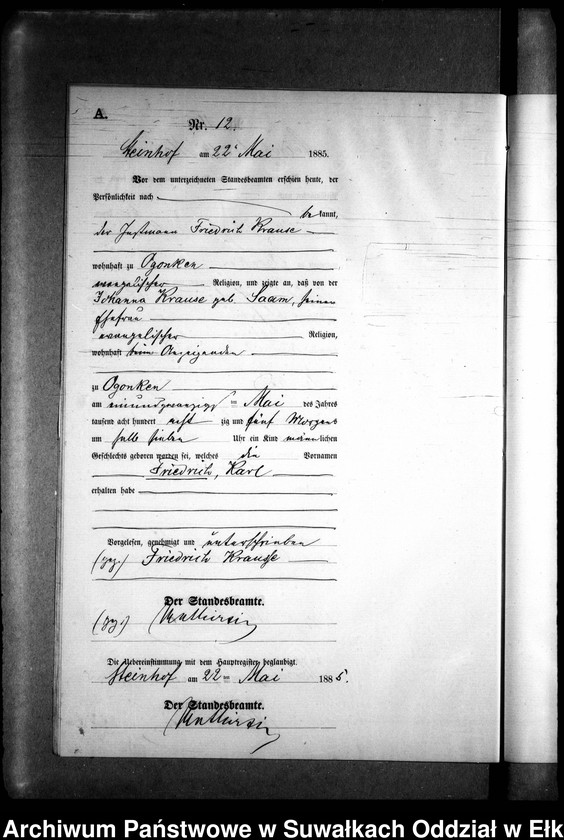 A.
Nr. 12.
Steinhof am 22ᵗ Mai 1885.
Vor dem unterzeichneten Standesbeamten erschien heute, der
Persönlichkeit nach
bekannt,
der Instmann Friedrich Krause
wohnhaft zu Ogonken
evangelischer Religion, und zeigte an, daß von der
Johanna Krause geb. Saam, seiner
Ehefrau
evangelischer Religion,
wohnhaft beim Anzeigenden
zu Ogonken
am einundzwanzigst ten Mai des Jahres
tausend acht hundert acht zig und fünf Morgens
um halb sieben Uhr ein Kind männlichen
Geschlechts geboren worden sei, welches die Vornamen
Friedrich, Karl
erhalten habe
Vorgelesen, genehmigt und unterschrieben
(gez.) Friedrich Krause
Der Standesbeamte.
(gez.)
Die Uebereinstimmung mit dem Hauptregister beglaubigt.
Steinhof am 22 ten Mai 1885.
Der Standesbeamte.
Archiwum Państwowe w Suwałkach Oddział w Ełk